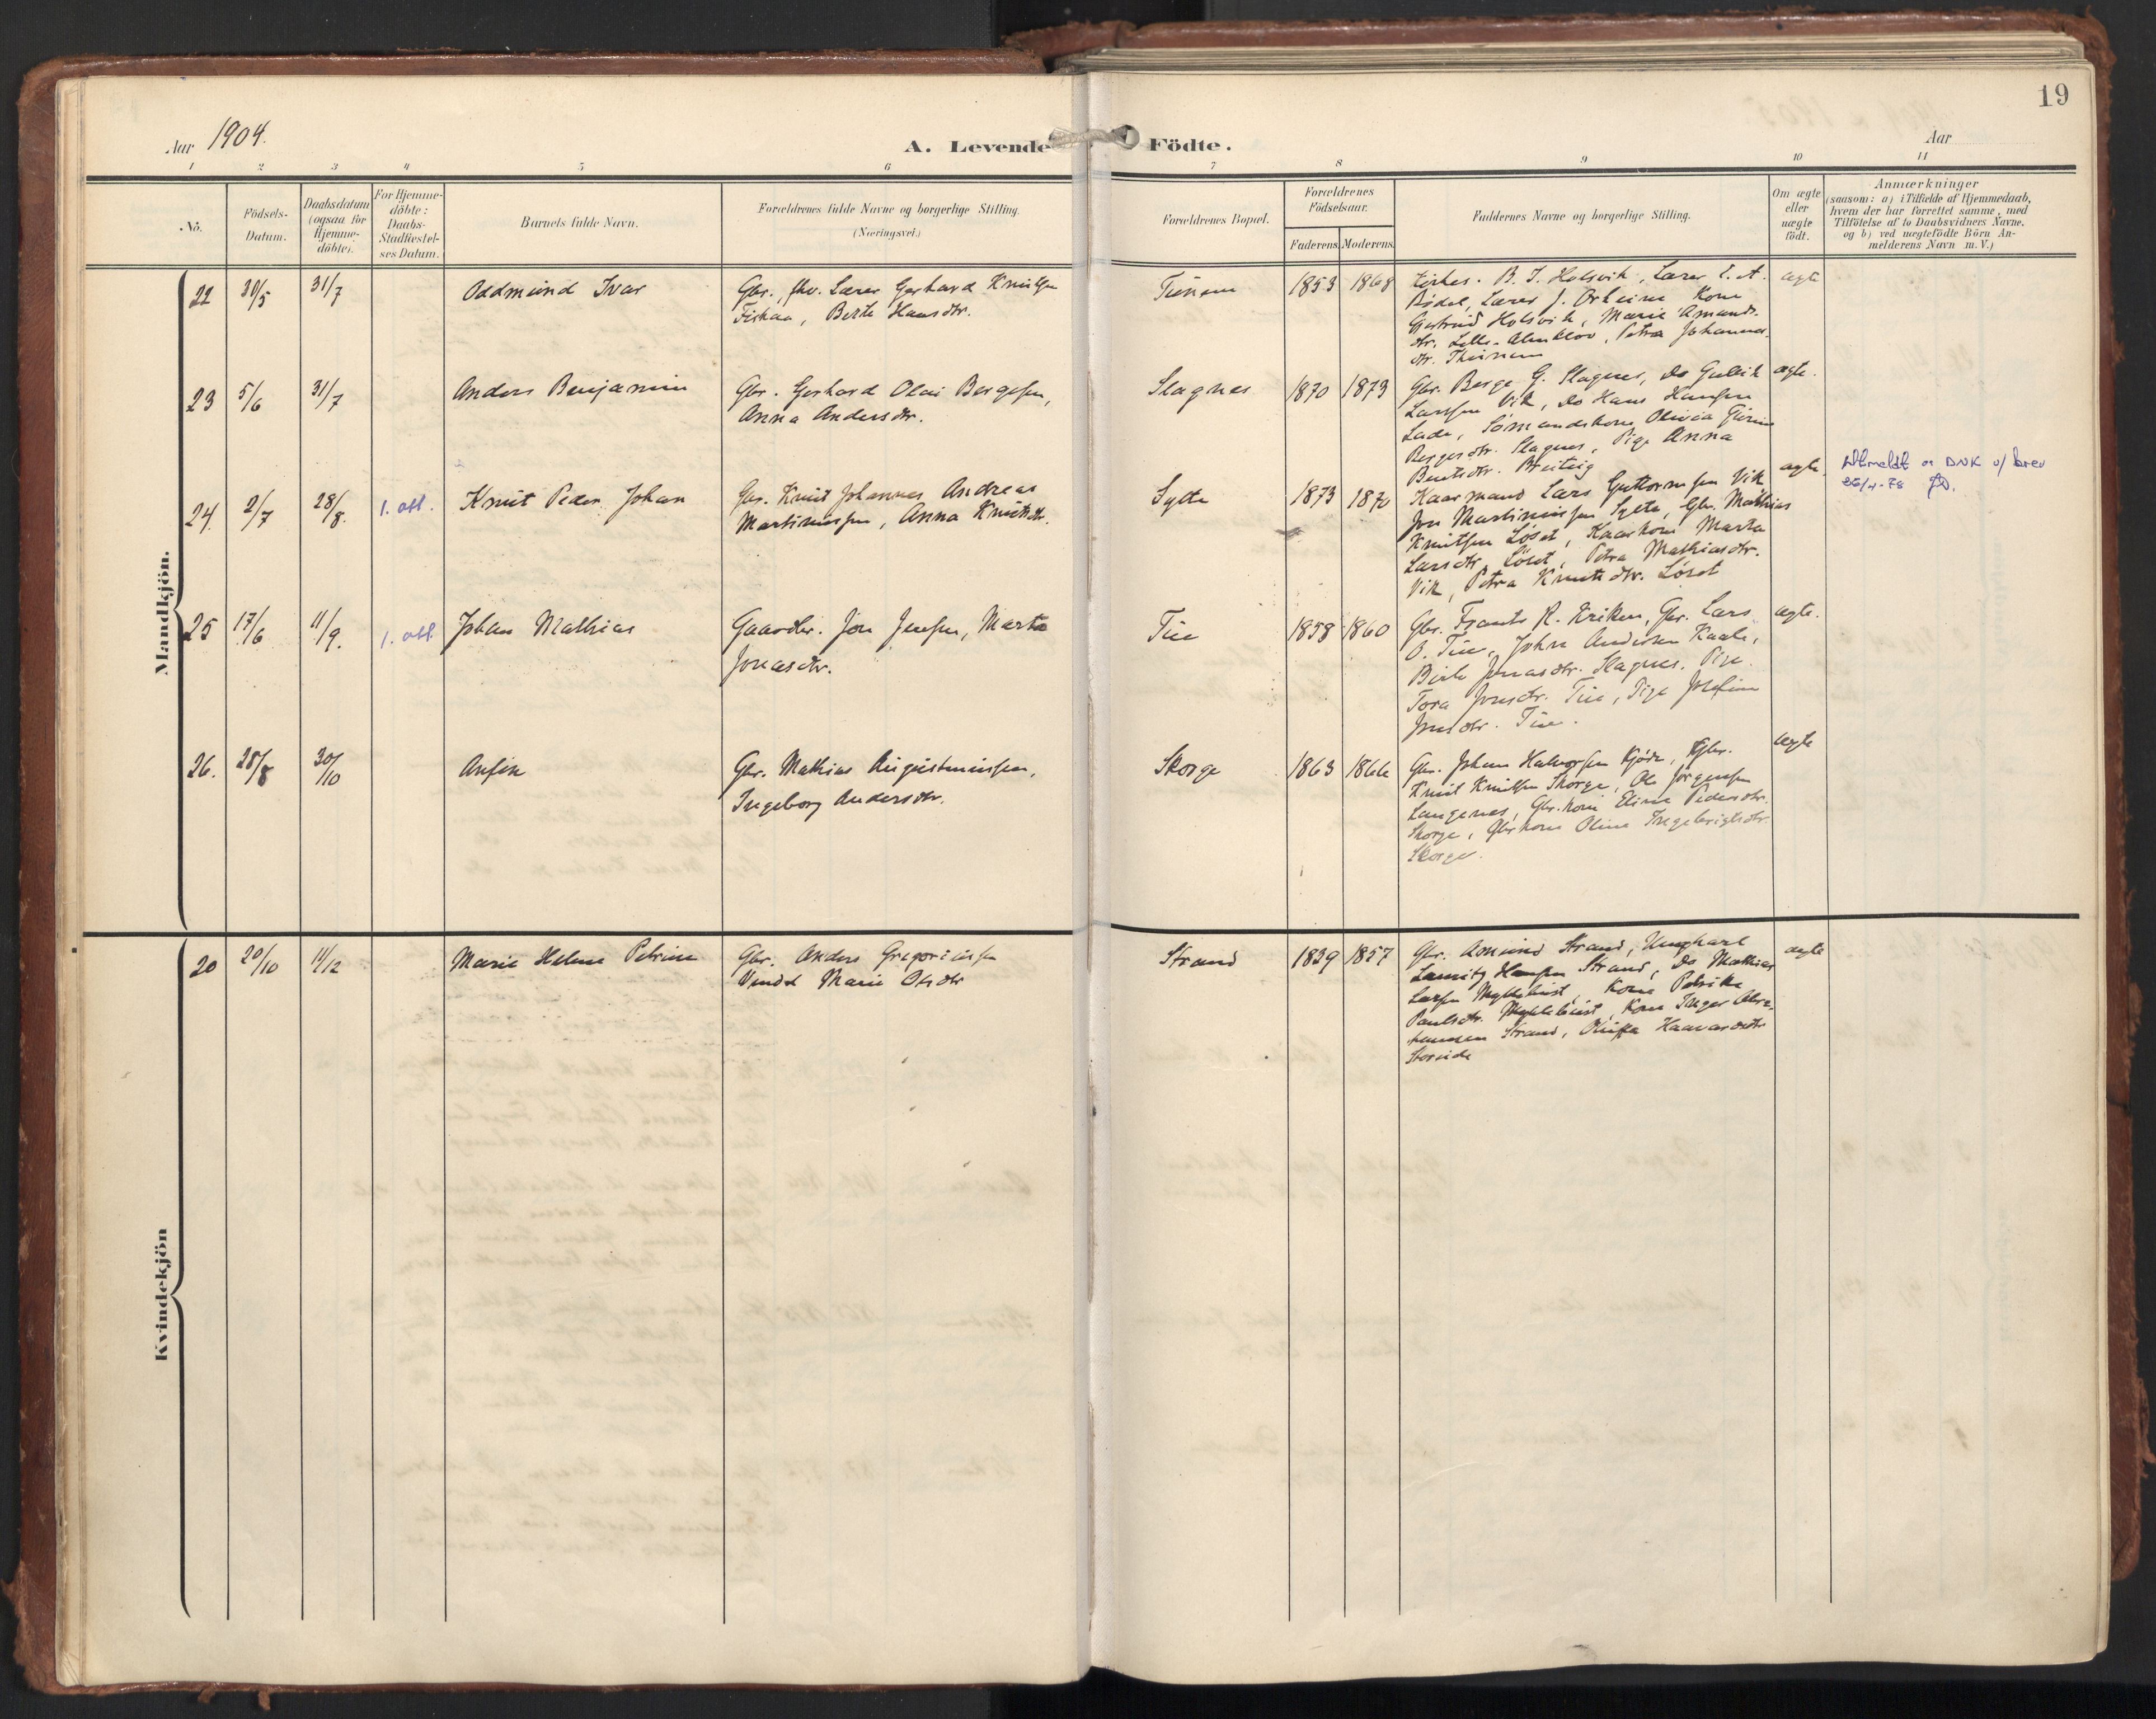 19
Aar 1904.
A. Levende Födte.
Aar
1 2 3 4 5 6 7 8 9 10 11
No.
Födsels-
Datum.
Daabsdatum
(ogsaa for
Hjemme-
döbte).
For Hjemme-
döbte:
Daabs-
Stadfæstel-
ses Datum.
Barnets fulde Navn.
Forældrenes fulde Navne og borgerlige Stilling.
(Næringsvei.)
Forældrenes Bopæl.
Forældrenes
Födselsaar.
Faderens. Moderens.
Faddernes Navne og borgerlige Stilling.
Om ægte
eller
uægte
födt.
Anmærkninger
(saasom: a) i Tilfælde af Hjemmedaab,
hvem der har forrettet samme, med
Tilföielse af to Daabsvidners Navne.
og b) ved uægtefödte Börn An-
melderens Navn m. V.)
Mandkjön.
22 30/5 31/7 Oddmund Ivar
Gbr., fhv. Lærer Gerhard Knutsen
Fiskaa, Berte Hansdtr.
Tunem 1853 1868
Kirkes. B. J. Holsvik, Lærer E. A.
Bödal, Lærer J. Orheim Kone
Gjertrud Holsvik, Marie Amunds-
dtr. Lille-Almklov, Petra Johannes-
dtr. Thunem
ægte
23 5/6 31/7 Anders Benjamin
Gbr. Gerhard Olai Bergesen,
Anna Andersdtr.
Slagnes 1870 1873
Gbr. Berge G. Slagnes, Do Gullik
Larssen Vik, Do Hans Hansen
Lade, Sömandskone Olivia
Bergesdtr. Slagnes, Pige Anna
Bentsdtr.
ægte.
24. 2/7 28/8. 1. att. Knut Peder Johan
Gbr. Knut Johannes Andreas
Martinussen, Anna Knutsdtr.
Sylte 1873 1870
Kaarmand Lars Guttormsen Vik
Jon Martinussen Sylte, Gbr. Mathias
Knutsen Löset, Kaarkone Marta
Larsdtr. Löset, Petra Mathiasdtr.
Vik, Petra Knutsdtr. Löset
ægte.
Utmeldt av DNK v/ brev
26/4-78
25 17/6 11/9. 1. att Johan Mathias
Gaardbr. Jon Jensen, Marte
Jonasdtr.
Tue 1858 1860
Gbr. Frants R. Eriken, Gbr. Lars
O. Tue, John Andersen Kaale,
Berte Jonasdtr. Slagnes. Pige
Tora Jonsdtr. Tue, Pige Josefine
Jonsdtr. Tue.
ægte.
26. 28/8 30/10 Anfin
Gbr. Mathias Augustinussen,
Ingeborg Andersdtr.
Skorge 1863 1866
Gbr. Johan Halvorsen Kjöde, Gbr.
Knut Knutsen Skorge, Ole Jörgensen
Langenes, Gbr.kone Eline Pedersdtr.
Skorge, Gbrkone Oline Ingebrigtsdtr.
Skorge.
ægte
Kvindekjön
20 20/10 11/12 Marie Helene Petrine
Gbr. Anders Gregoriussen
Vindel Marie Olsdtr
Strand 1839 1857
Gbr. Asmund Strand, Ungkarl
Lauritz Hansen Strand, Do Mathias
Larsen Myklebust, Kone Petrike
Paulsdtr. Myklebust, Kone Inger Abra-
hamsen Strand, Oluffa Haavardsdtr
Storeide
ægte